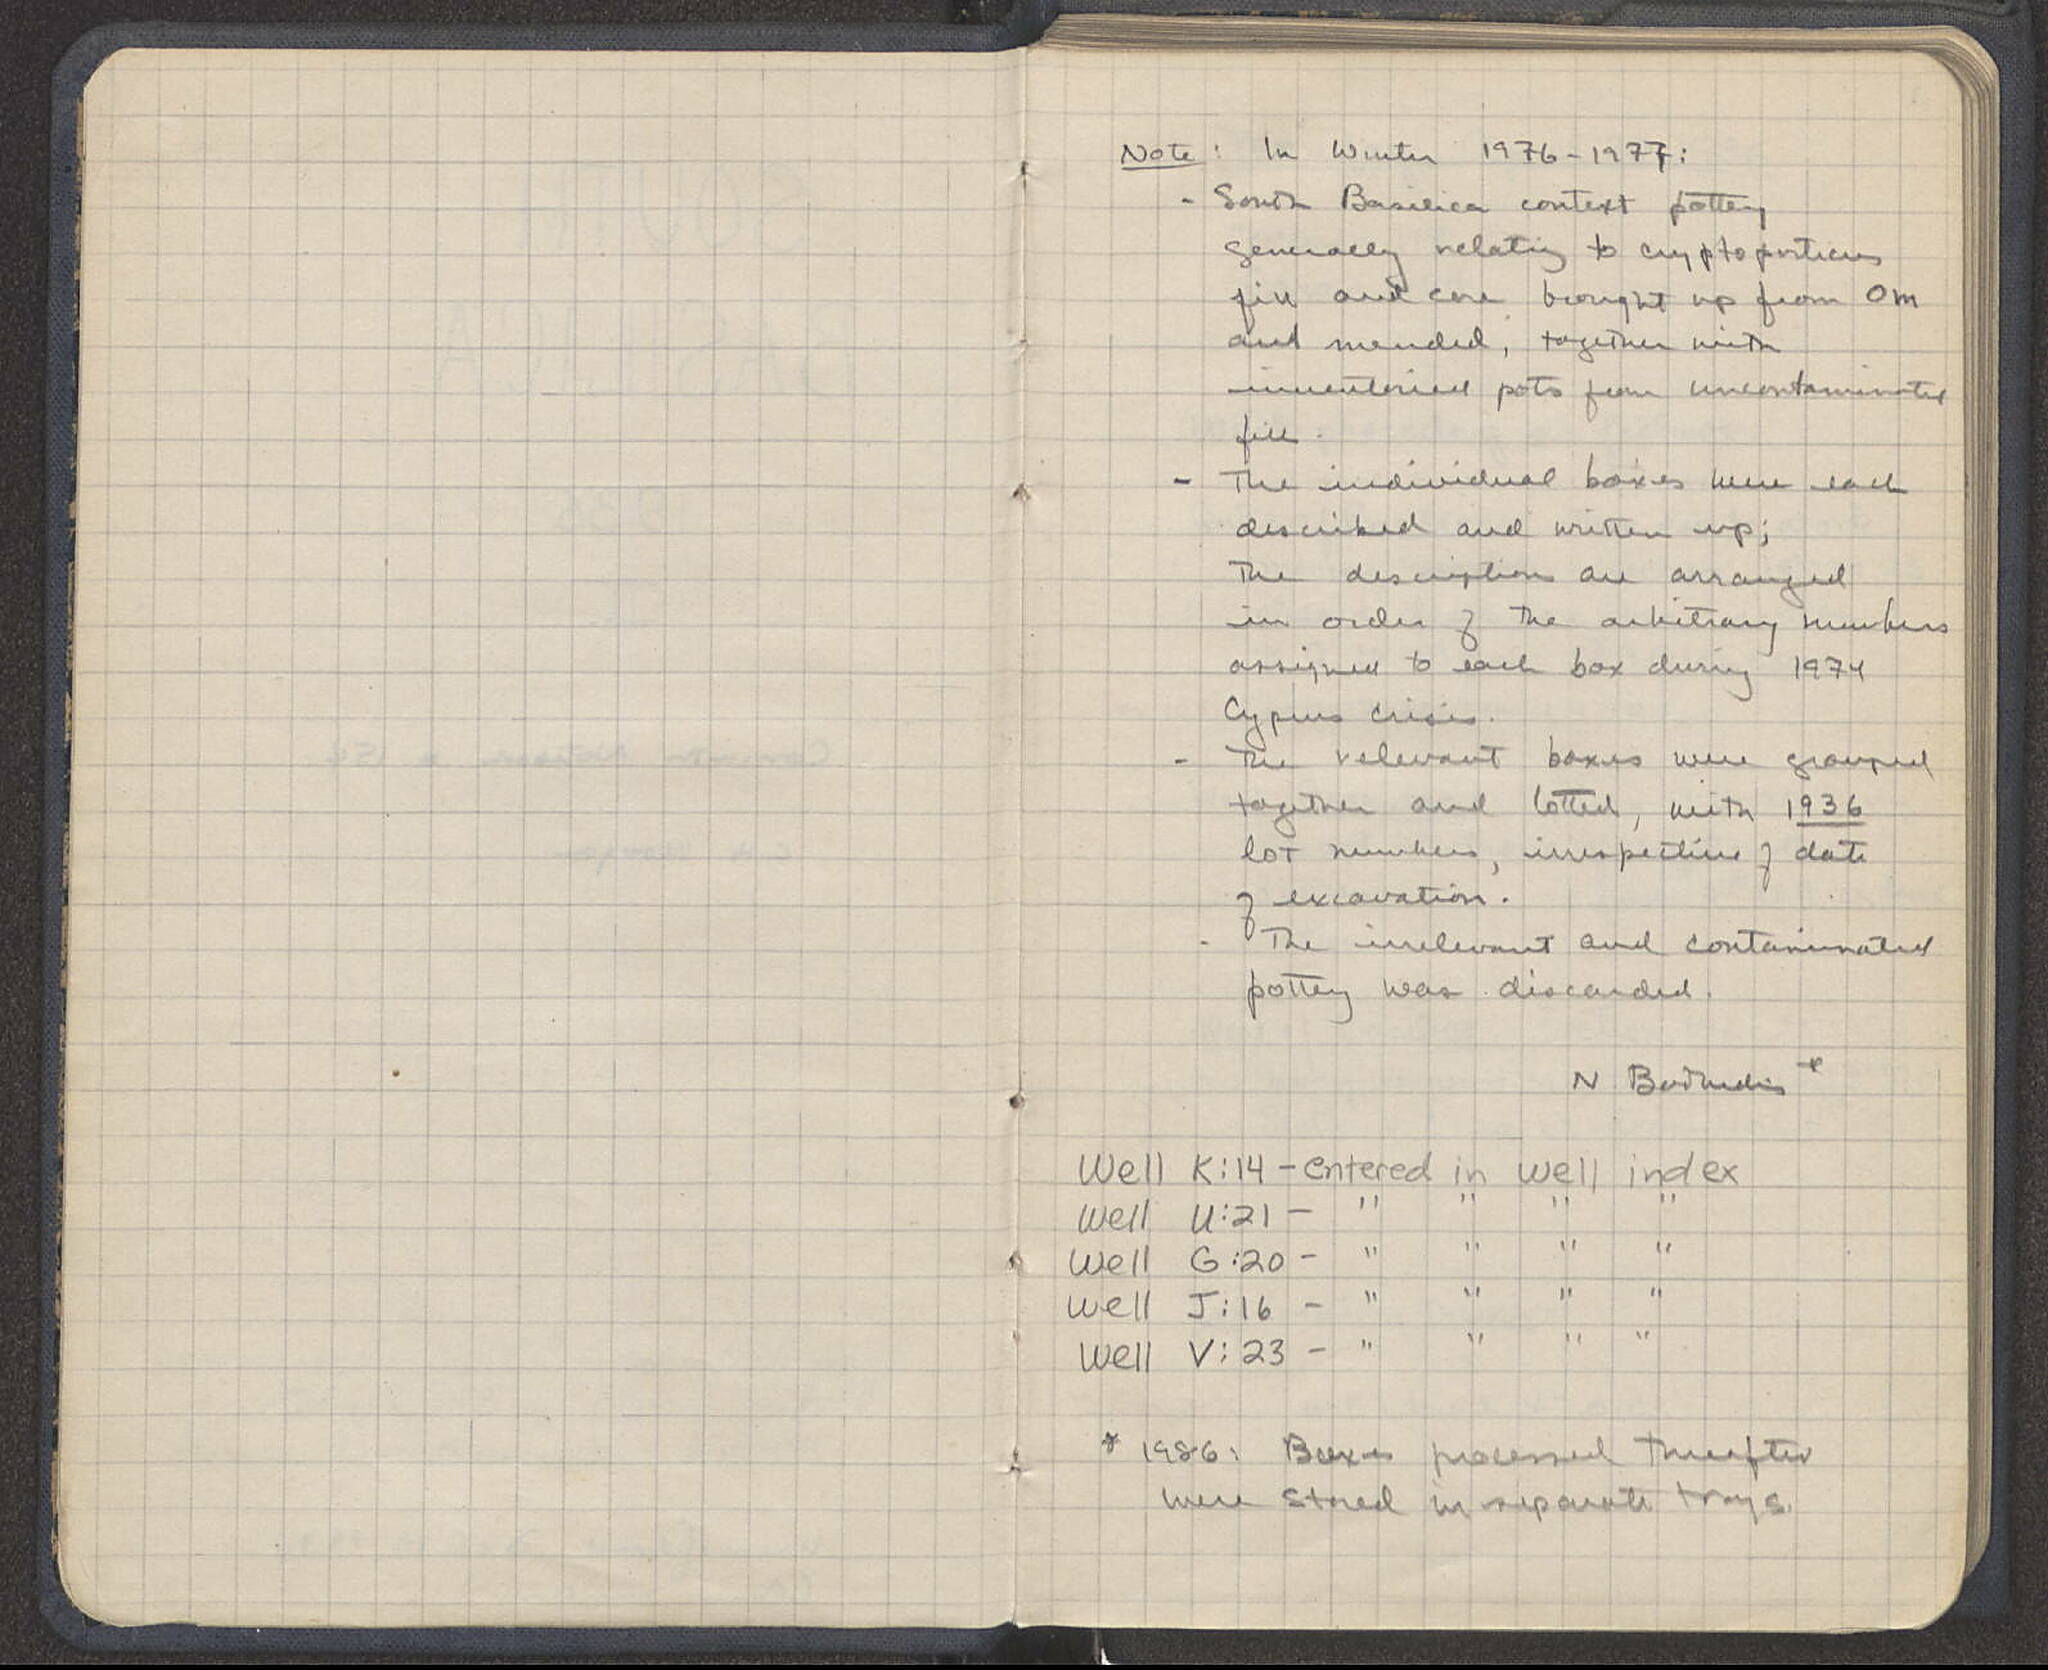 Note: In Winter 1976-1977:
- South Basilica context pottery
generally relating to cryptoporticus
fill and core brought up from OM
and mended, together with
inventoried pots from uncontaminated
fill.
- The individual boxes were each
described and written up;
The descriptions are arranged
in order of the arbitrary numbers
assigned to each box during 1974
Cyprus crisis.
- The relevant boxes were grouped
together and lotted, with 1936
lot numbers, irrespective of date
of excavation.
- The irrelevant and contaminated
pottery was discarded.
N Bookidis *
Well K:14 - entered in well index
Well U:21 - " " " "
Well G:20 - " " " "
Well J:16 - " " " "
Well V:23 - " " " "
* 1986: Boxes processed thereafter
were stored in separate trays.